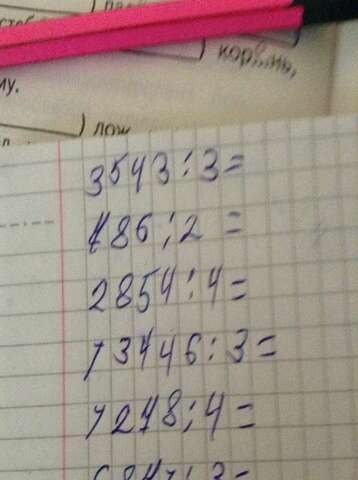 корень,
му.
лож
3543:3=
486:2=
2854:4=
73446:3=
7248:4=